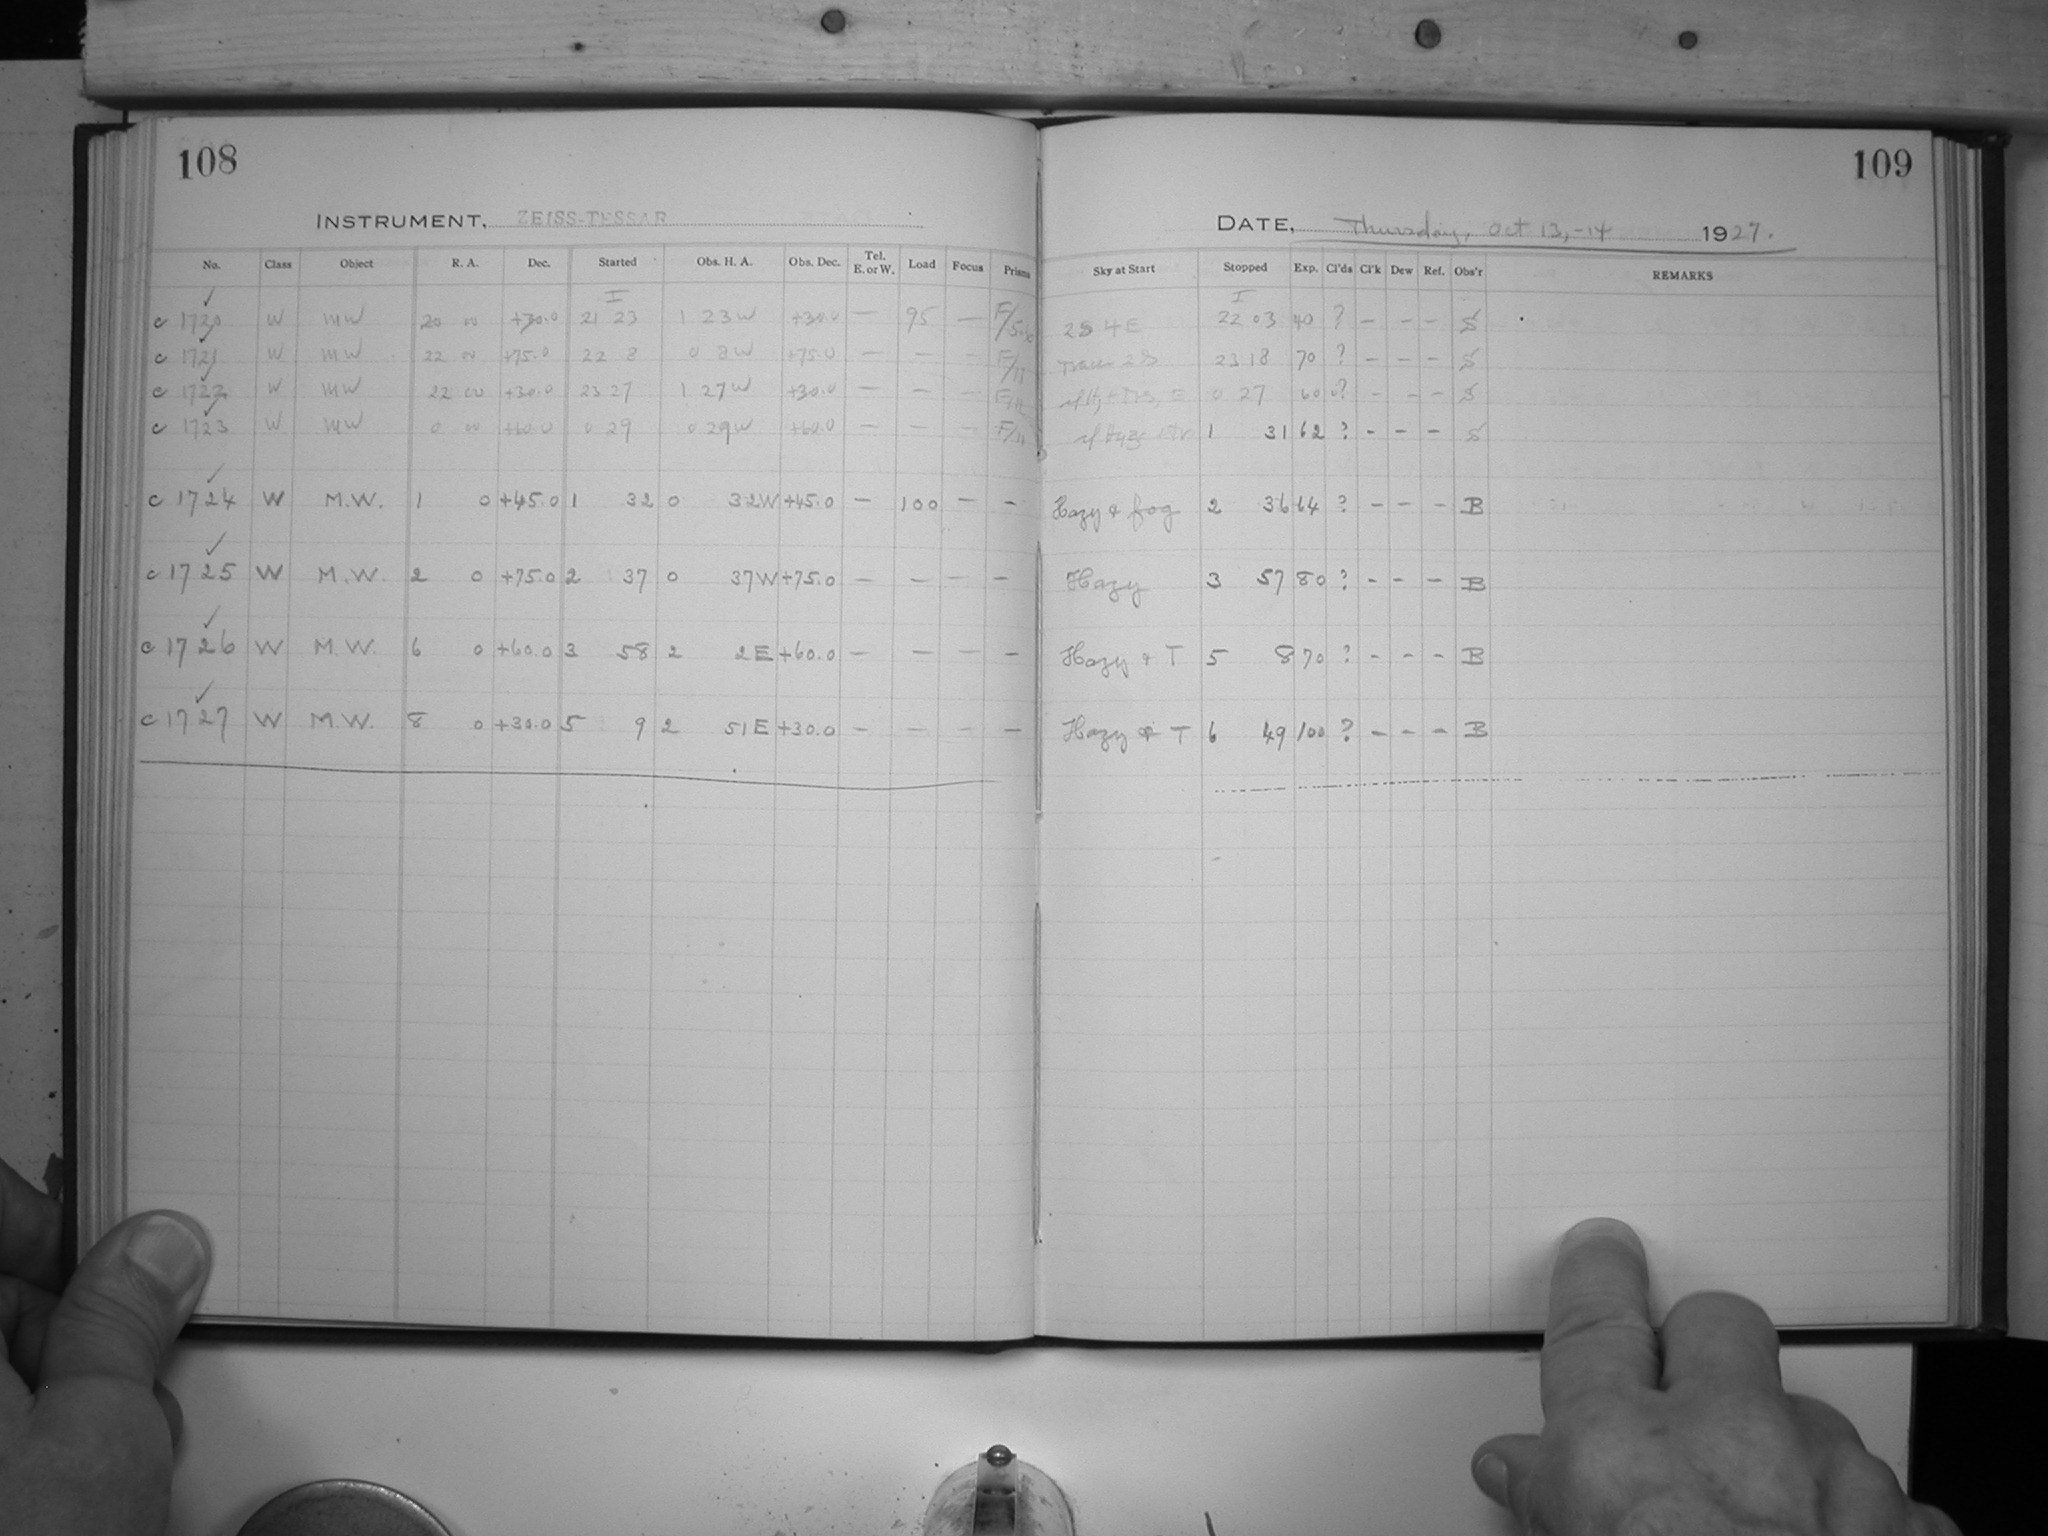 108
INSTRUMENT, ZEISS-TESSAR
No. Class Object R. A. Dec. Started Obs. H. A. Obs. Dec. Tel. E. or W. Load Focus Prisms
I
c 1720 W MW 20 00 +30.0 21 23 1 23W +30.0 — 95 —
c 1721 W MW 22 00 +75.0 22 8 0 8W +75.0 — — — F/11
c 1722 W MW 22 00 +30.0 23 27 1 27W +30.0 — — — F/11
c 1723 W MW 0 00 +60.0 0 29 0 29W +60.0 — — — F/11
c 1724 W M.W. 1 0 +45.0 1 32 0 32W +45.0 — 100 — —
c 1725 W M.W. 2 0 +75.0 2 37 0 37W +75.0 — — — —
c 1726 W M.W. 6 0 +60.0 3 58 2 2E +60.0 — — — —
c 1727 W M.W. 8 0 +30.0 5 9 2 51E +30.0 — — — —
109
DATE, Thursday, Oct 13,-14 1927.
Sky at Start Stopped Exp. Cl'ds Cl'k Dew Ref. Obs'r REMARKS
I
2S 4E 22 03 40 ? — — — S
23 18 70 ? — — — S
0 27 60 ? — — — S
1 31 62 ? — — — S
Hazy & fog 2 36 64 ? — — — B
Hazy 3 57 80 ? — — — B
Hazy & T 5 8 70 ? — — — B
Hazy & T 6 49 100 ? — — — B